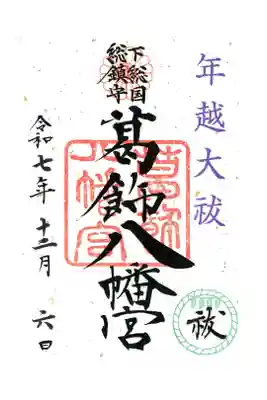 年越大祓
下総国
総鎮守
葛飾八幡宮
葛飾
八幡宮
令和七年 十二月 六日
祓